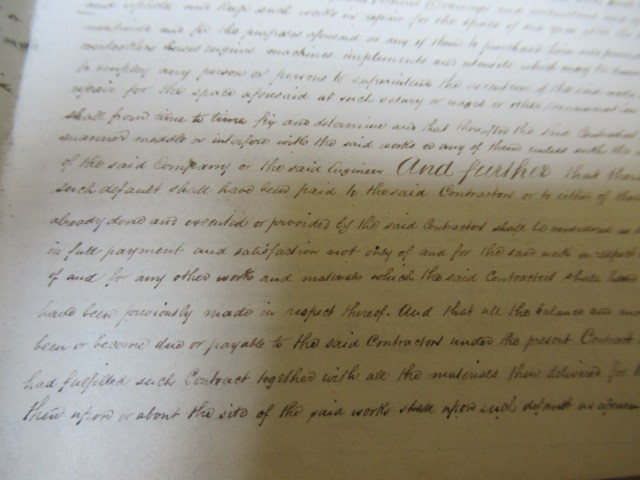 and uphold and keep such works in repair for the space of one year after the
mentioned and for the purposes aforesaid or any of them to purchase hire
horses engines machines implements and utensils which may be
to employ any person or persons to superintend the execution of the said works
repair for the space aforesaid at such salary or wages or other remuneration
shall from time to time fix and determine and that thereafter the said Contractors
manner meddle or interfere with the said works or any of them unless with the
of the said Company or the said Engineer And further that
such default shall have been paid to the said Contractors or to either of them
already done and executed or provided by the said Contractors shall be considered as
in full payment and satisfaction not only of and for the said work in respect
of and for any other works and materials which the said Contractors shall have
have been previously made in respect thereof. And that all the balance and
been or become due or payable to the said Contractors under the present Contract
had fulfilled such Contract together with all the materials then delivered for
then upon or about the site of the said works shall upon such default as aforesaid